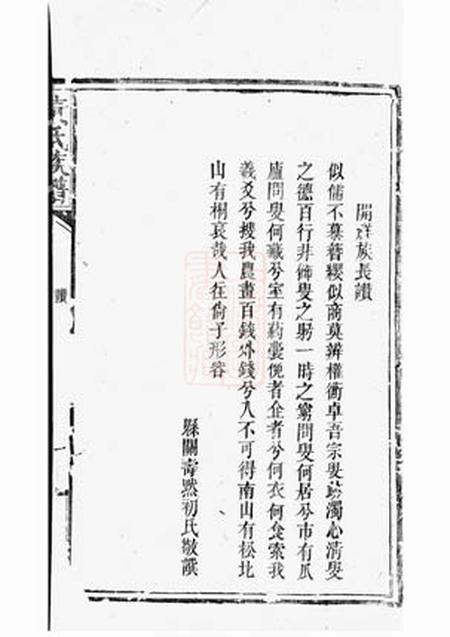 開祥族長讚
似儒不慕簪纓似商莫辨權衡卓吾宗叟跡濁心清叟
之德百行非師叟之躬一時之窮問叟何居兮市有瓜
廬問叟何藏兮室有药囊俛者企者兮何衣何食索我
羲爻兮搜我農畫百錢外錢兮入不可得南山有松北
山有桐哀哉人往尙子形容
縣關壽然初氏敬譔
氏族譜
讚